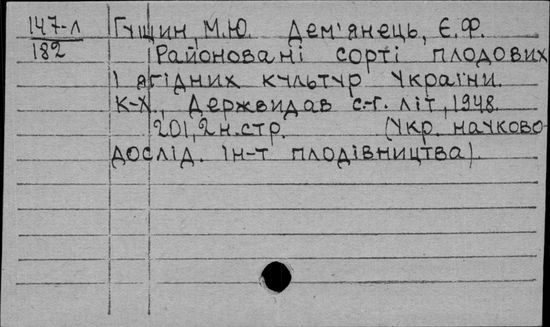 147-л Гущин, М.Ю. Дем'янець, Є.Ф.
182 Районовані сорті плодових
і ягідних культур України.
К-Х., Держвидав с.-г. літ, 1948.
201, 2 н.стр. (Укр. науково
дослід. ін-т плодівництва).